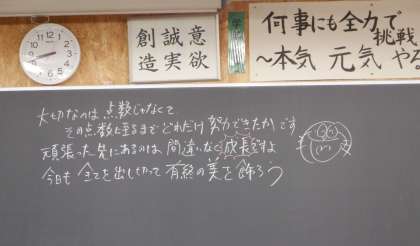 創 誠 意
造 実 欲
何事にも全力で
挑戦
～本気 元気 やる
大切なのは点数じゃなくて
その点数に至るまでどれだけ努力できたかです
頑張った先にあるのは間違いなく成長ですよ
今日も全てを出し切って有終の美を飾ろう